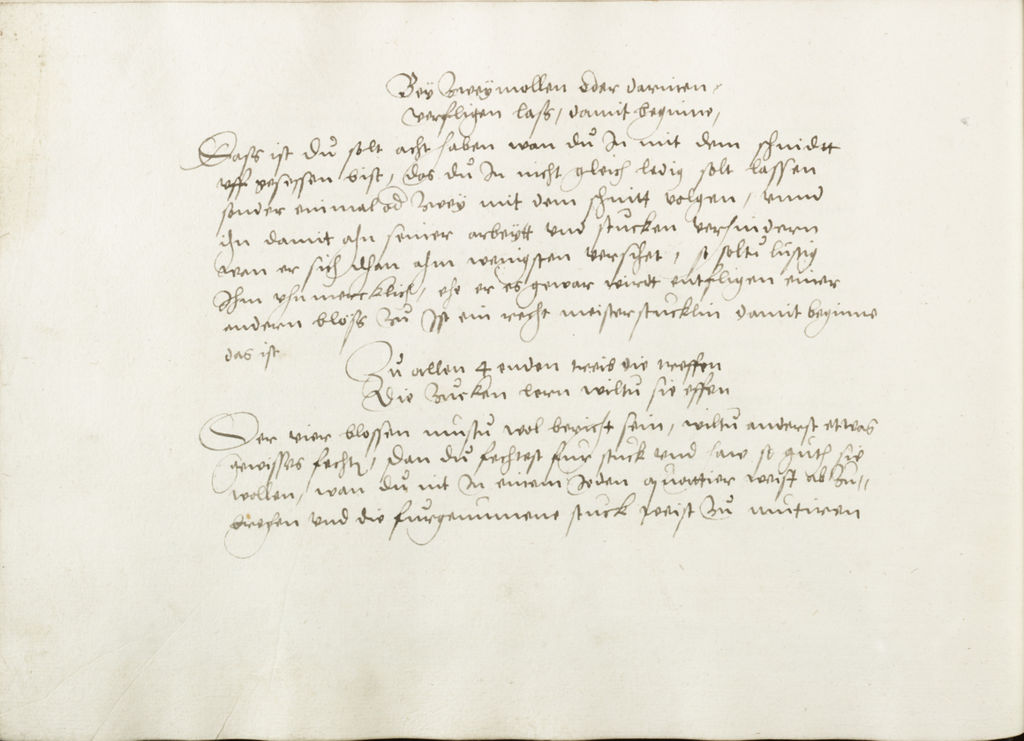 Bey Zweymollen oder dareinen,
verfligen lass, damit beginne,
Dass ist du solt acht haben wan du In mit dem schnidtt
uff gesessen bist, das du In nicht gleich ledig solt lassen
sonder einmal od Zwey mit dem schnitt volgen, vnnd
ihn damit ahn seiner arbeytt vnd stucken verhindern
wen er sich dan ahm wenigsten versihet, so soltu lustig
Ihm vhnmercklich, ehe er es gewar wirdt entfligen einer
andern blöss Zu Ist ein recht meisterstucklin damit beginne
das ist
Zu allen 4 enden treib die treffen
Die Zucken lern wiltu sie effen
Der vier blossen mustu wol bericht sein, wiltu anderst ettwas
gewisses fechten, Dan du fechtest fur stuck vnd haw so guth sie
wollen, wan du nit In einem Jeden quarttier weist ab Zu-
brechen vnd die furgenumene stuck weist Zu mutiren